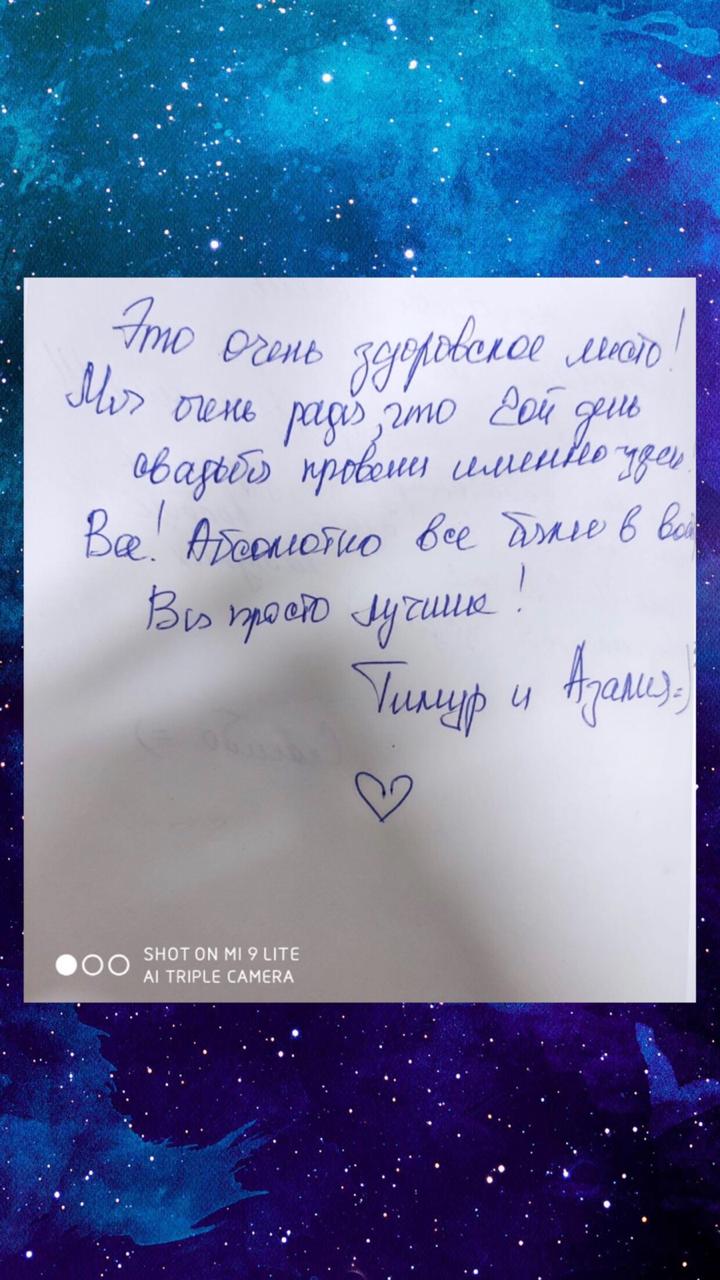 Это очень здоровское место!
Мы очень рады, что 2ой день
свадьбы провели именно
Все! Абсолютно все было в
Вы просто лучшие!
Тимур и Азалия=)
SHOT ON MI 9 LITE
AI TRIPLE CAMERA